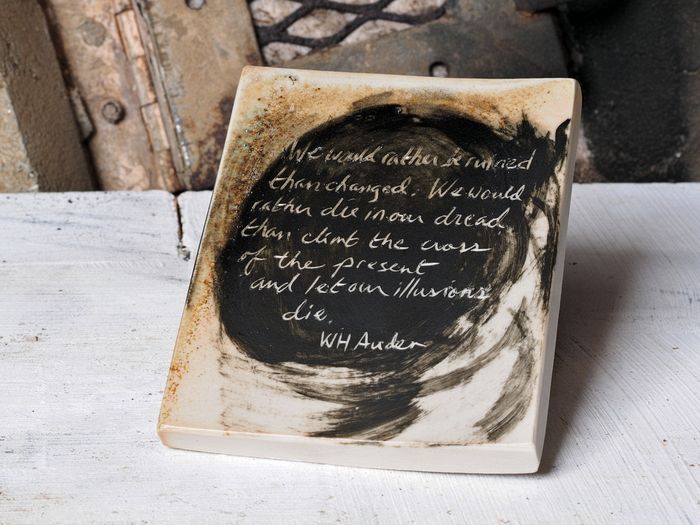 We would rather be ruined
than changed. We would
rather die in our dread
than climb the cross
of the present
and let our illusions
die.
WH Auden